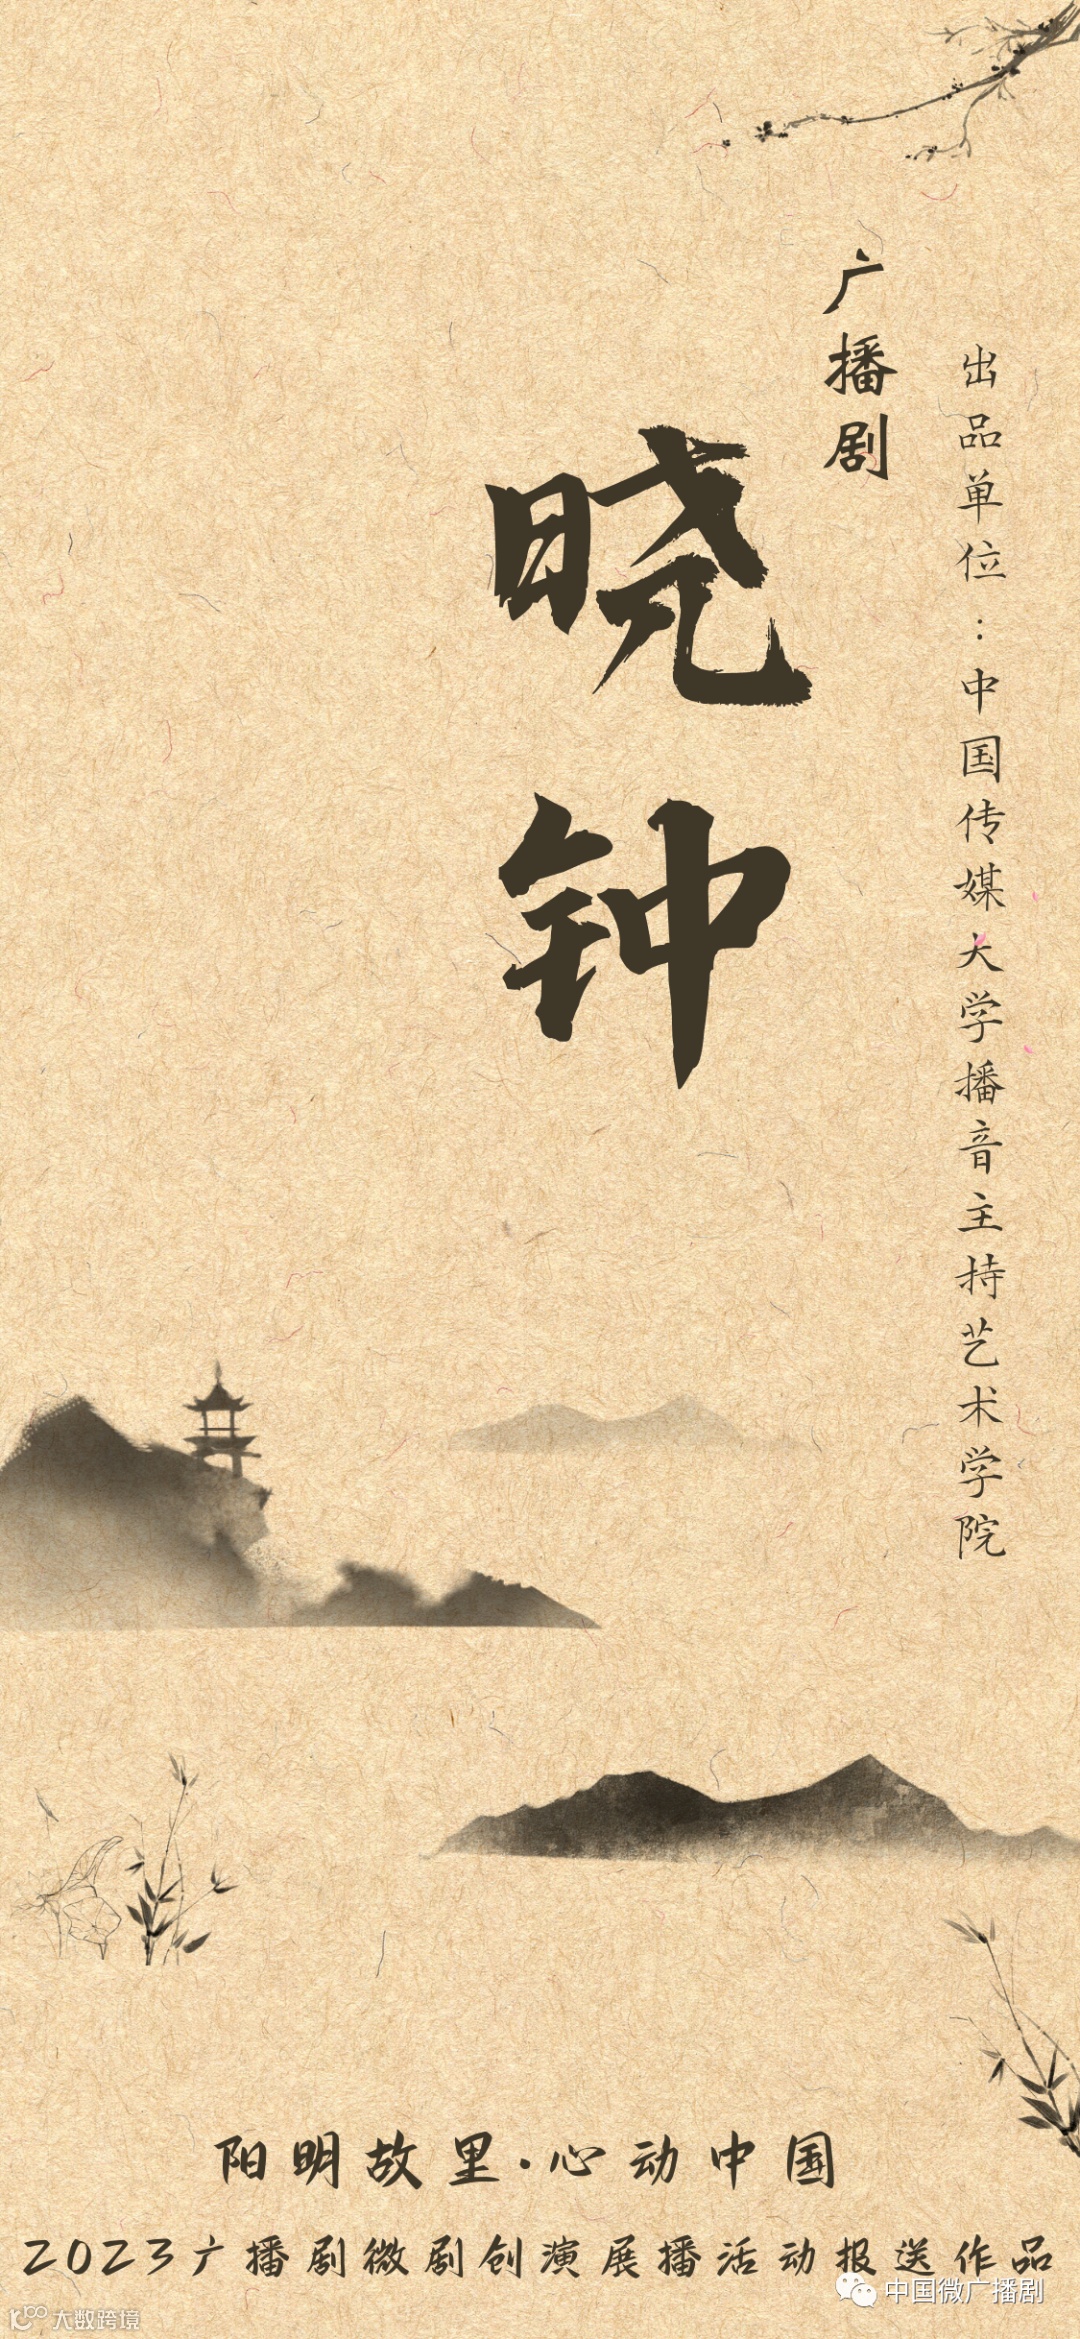 出品单位：中国传媒大学播音主持艺术学院
广播剧
晓钟
阳明故里·心动中国
2023广播剧微剧创演展播活动报送作品
中国微广播剧
大数跨境